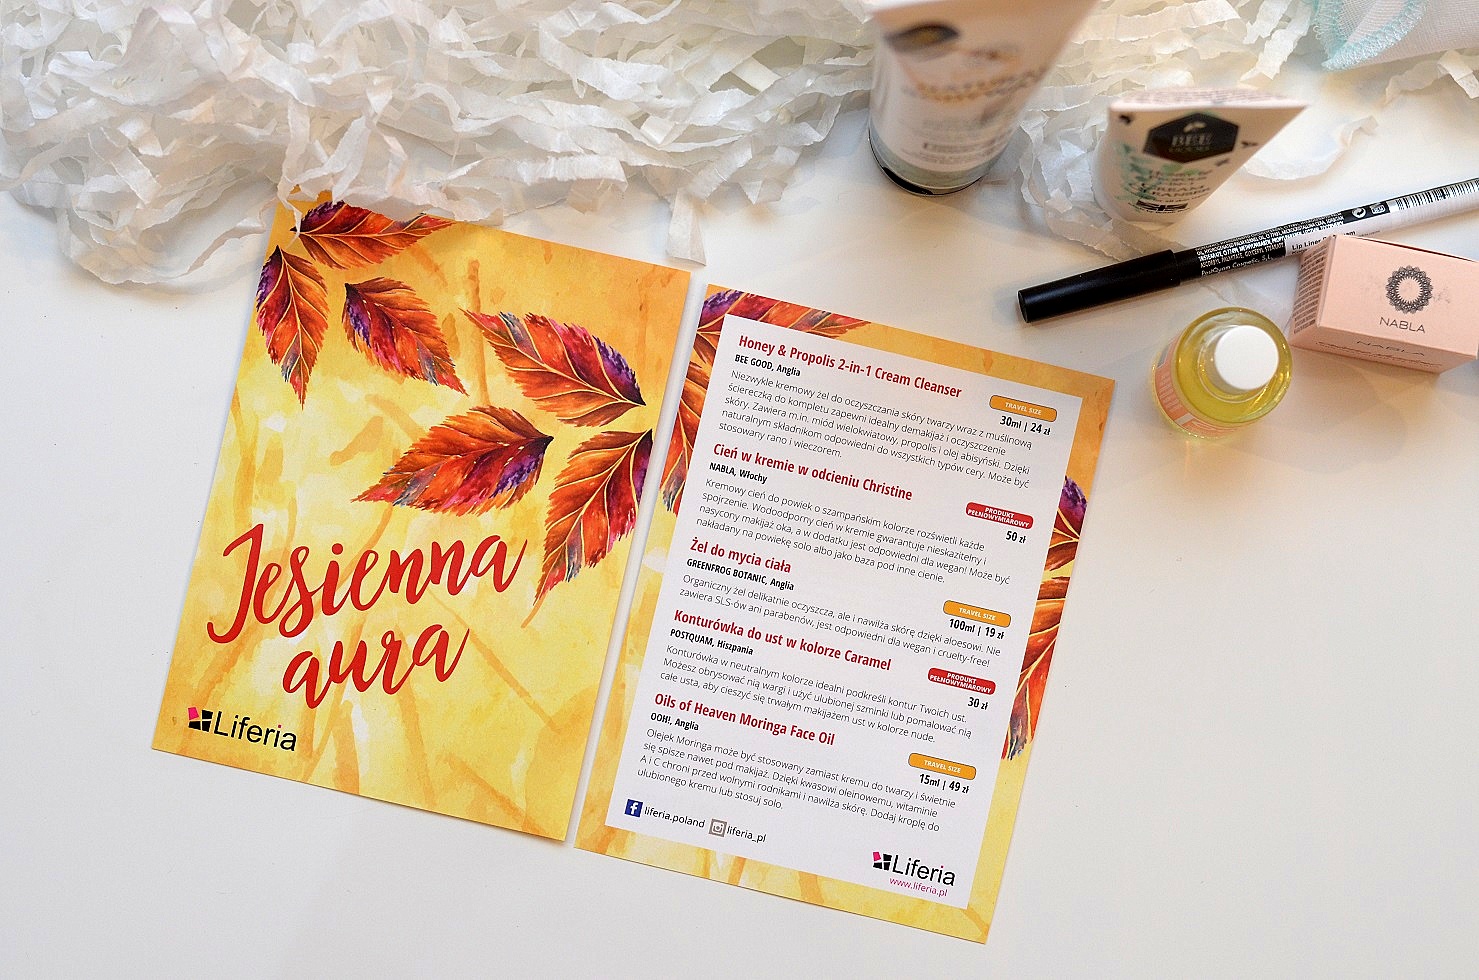 Jesienna
aura
Liferia
Honey & Propolis 2-in-1 Cream Cleanser
BEE GOOD, Anglia
TRAVEL SIZE
30ml | 24 zł
Niezwykle kremowy żel do oczyszczania skóry twarzy wraz z muślinową
ściereczką do kompletu zapewni idealny demakijaż i oczyszczenie
skóry. Zawiera m.in. miód wielokwiatowy, propolis i olej abisyński. Dzięki
naturalnym składnikom odpowiedni do wszystkich typów cery. Może być
stosowany rano i wieczorem.
Cień w kremie w odcieniu Christine
NABLA, Włochy
PRODUKT
PEŁNOWYMIAROWY
50 zł
Kremowy cień do powiek o szampańskim kolorze rozświetli każde
spojrzenie. Wodoodporny cień w kremie gwarantuje nieskazitelny i
nasycony makijaż oka, a w dodatku jest odpowiedni dla wegan! Może być
nakładany na powiekę solo albo jako baza pod inne cienie.
Żel do mycia ciała
GREENFROG BOTANIC, Anglia
TRAVEL SIZE
100ml | 19 zł
Organiczny żel delikatnie oczyszcza, ale i nawilża skórę dzięki aloesowi. Nie
zawiera SLS-ów ani parabenów, jest odpowiedni dla wegan i cruelty-free!
Konturówka do ust w kolorze Caramel
POSTQUAM, Hiszpania
PRODUKT
PEŁNOWYMIAROWY
30 zł
Konturówka w neutralnym kolorze idealni podkreśli kontur Twoich ust.
Możesz obrysować nią wargi i użyć ulubionej szminki lub pomalować nią
całe usta, aby cieszyć się trwałym makijażem ust w kolorze nude.
Oils of Heaven Moringa Face Oil
OOH!, Anglia
TRAVEL SIZE
15ml | 49 zł
Olejek Moringa może być stosowany zamiast kremu do twarzy i świetnie
się spisze nawet pod makijaż. Dzięki kwasowi oleinowemu, witaminie
A i C chroni przed wolnymi rodnikami i nawilża skórę. Dodaj kroplę do
ulubionego kremu lub stosuj solo.
liferia.poland
liferia_pl
Liferia
www.liferia.pl
BEE
PostQuam Cosmetic, S.L.
Lip Liner
NABLA
NABLA